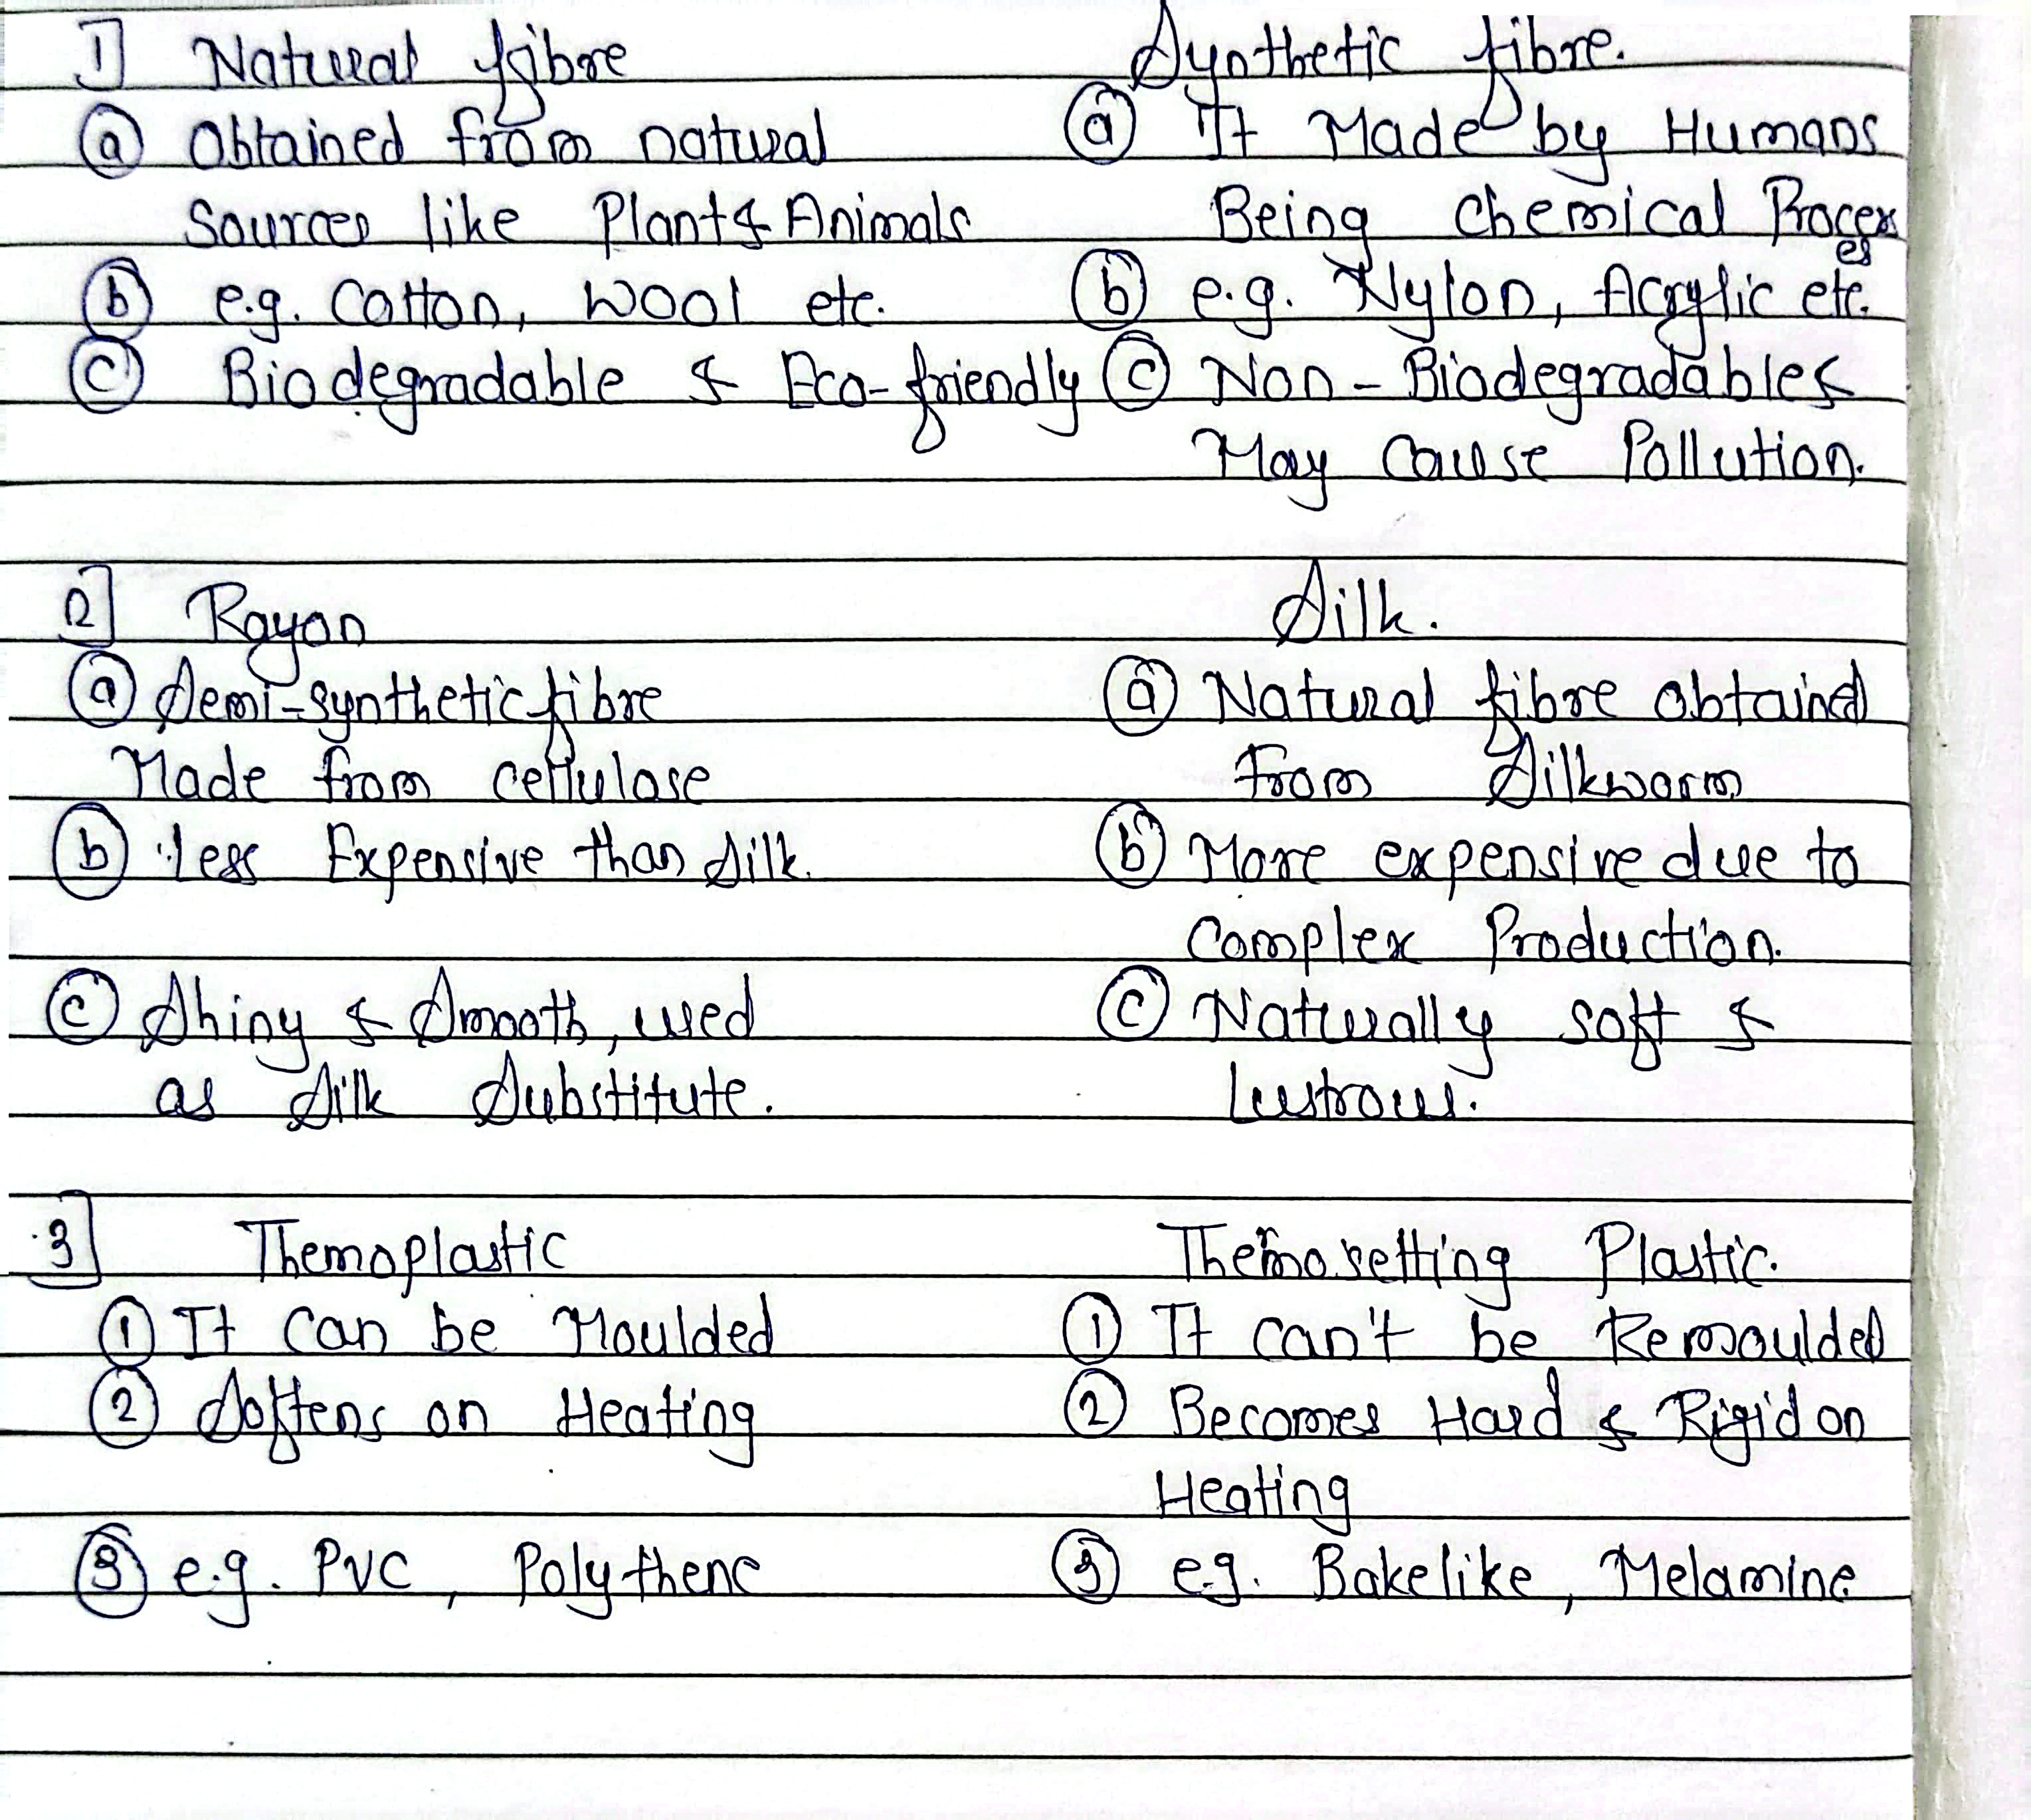 1] Natural fibre Synthetic fibre.
(a) Obtained from natural (a) It Made by Humans
Sources like Plant & Animals Being Chemical Process
es
(b) e.g. Cotton, Wool etc. (b) e.g. Nylon, Acrylic etc.
(c) Biodegradable & Eco-friendly (c) Non-Biodegradable &
May Cause Pollution.
2] Rayon Silk.
(a) Semi-synthetic fibre (a) Natural fibre obtained
Made from cellulose from Silkworm
(b) less Expensive than Silk. (b) More expensive due to
Complex Production.
(c) Shiny & Smooth, used (c) Naturally soft &
as Silk Substitute. lustrous.
3] Themoplastic Themosetting Plastic.
(1) It Can be Moulded (1) It can't be Remoulded
(2) Softens on Heating (2) Becomes Hard & Rigid on
Heating
(3) e.g. PVC, Polythene (3) e.g. Bakelike, Melamine